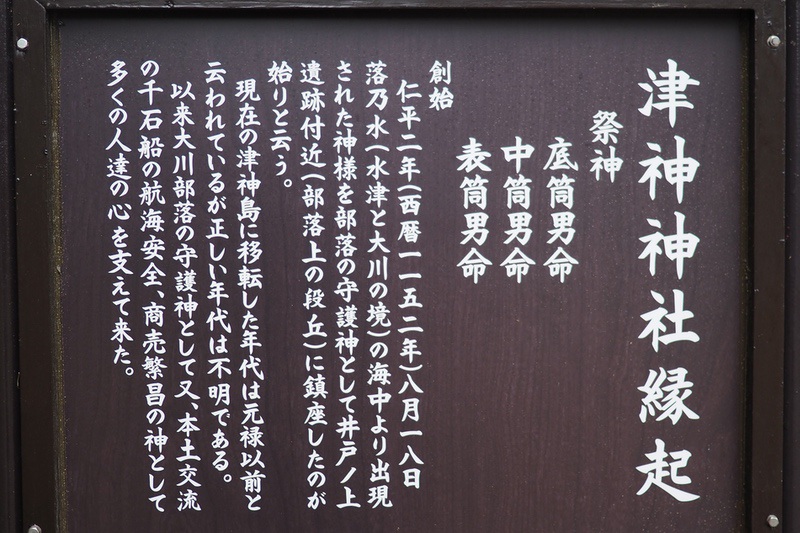 津神神社縁起
祭神
底筒男命
中筒男命
表筒男命
創始
仁平二年(西暦一一五二年)八月一八日
落乃水(水津と大川の境)の海中より出現
された神様を部落の守護神として井戸ノ上
遺跡付近(部落上の段丘)に鎮座したのが
始りと云う。
現在の津神島に移転した年代は元禄以前と
云われているが正しい年代は不明である。
以来大川部落の守護神として又、本土交流
の千石船の航海安全、商売繁昌の神として
多くの人達の心を支えて来た。